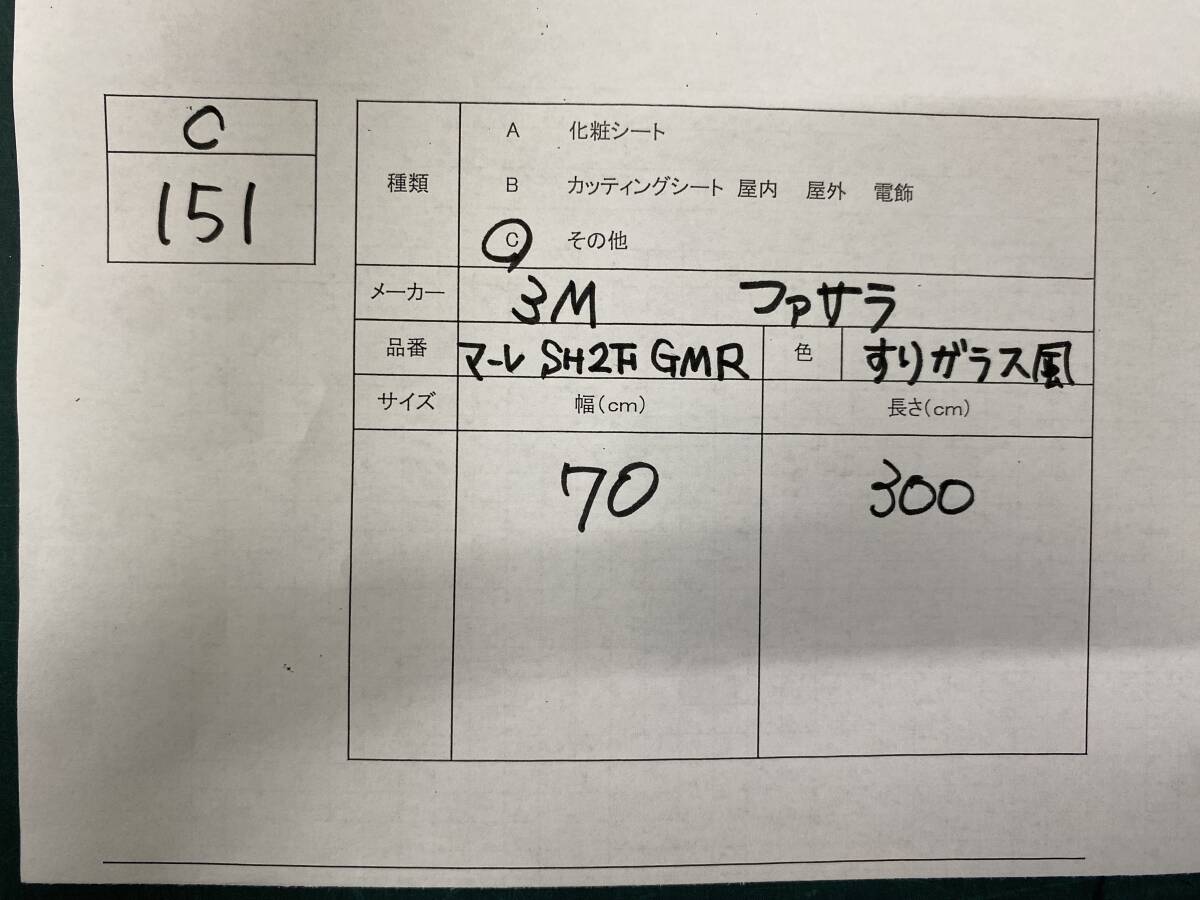 C
151
種類
A 化粧シート
B カッティングシート 屋内 屋外 電飾
C その他
メーカー 3M ファサラ
品番 マーレ SH2FI GMR 色 すりガラス風
サイズ 幅(cm) 長さ(cm)
70 300